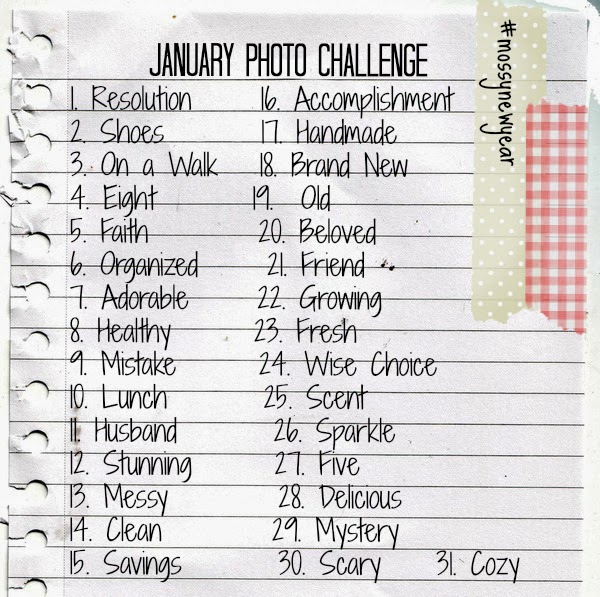 JANUARY PHOTO CHALLENGE
#mossynewyear
1. Resolution
2. Shoes
3. On a Walk
4. Eight
5. Faith
6. Organized
7. Adorable
8. Healthy
9. Mistake
10. Lunch
11. Husband
12. Stunning
13. Messy
14. Clean
15. Savings
16. Accomplishment
17. Handmade
18. Brand New
19. Old
20. Beloved
21. Friend
22. Growing
23. Fresh
24. Wise Choice
25. Scent
26. Sparkle
27. Five
28. Delicious
29. Mystery
30. Scary
31. Cozy